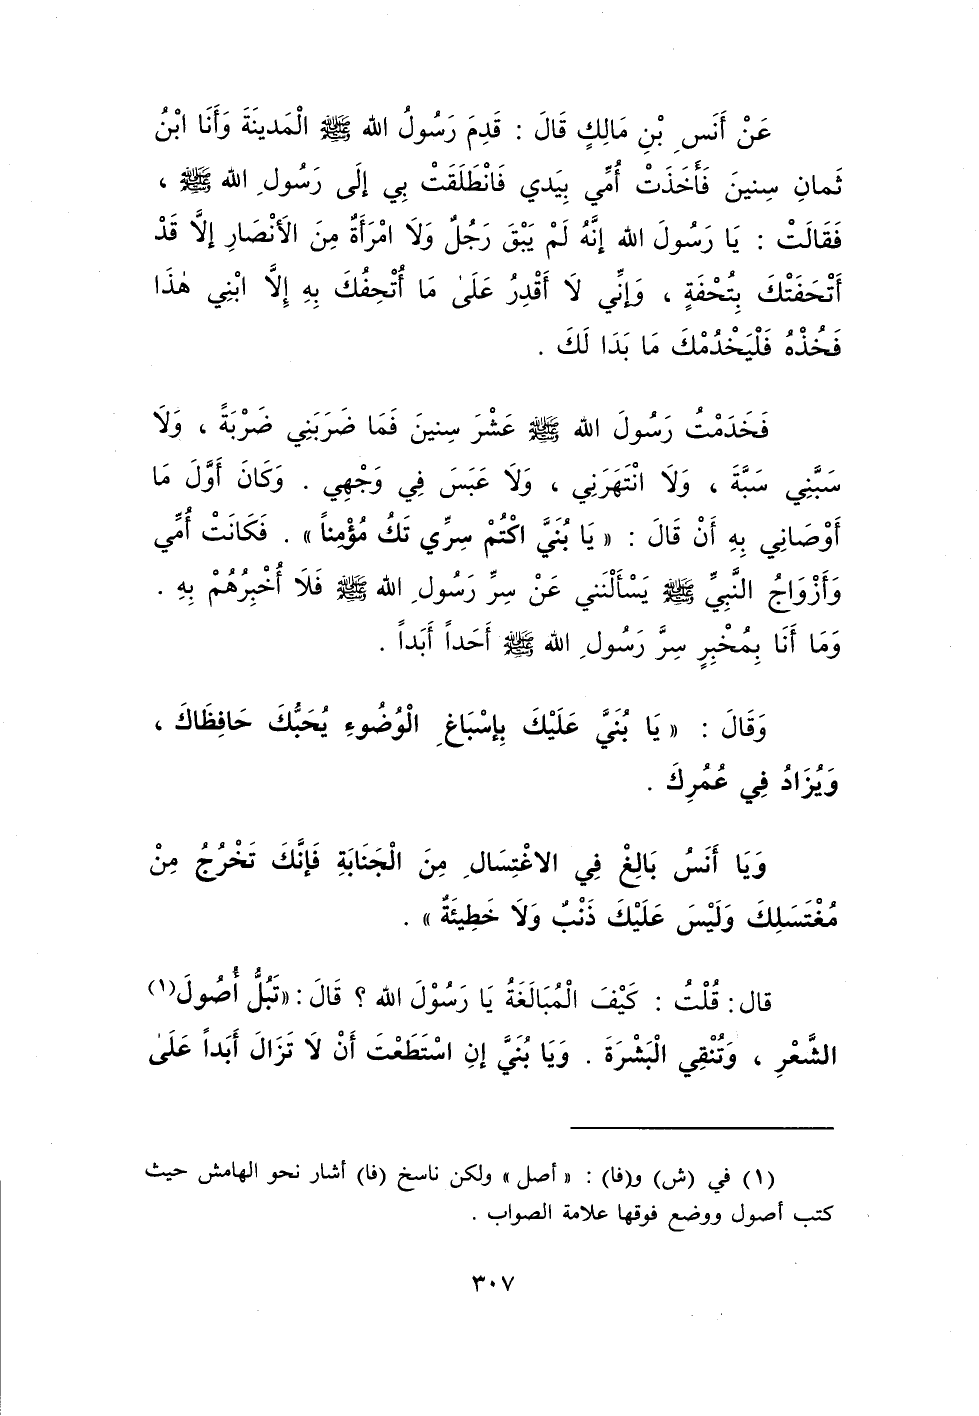 عَنْ أَنَسِ بْنِ مَالِكٍ قَالَ : قَدِمَ رَسُولُ الله ﷺ الْمَدينَةَ وَأَنَا ابْنُ
ثَمانِ سِنينَ فَأَخَذَتْ أُمِّي بِيَدي فَانْطَلَقَتْ بِي إلَى رَسُولِ الله ﷺ ،
فَقَالَتْ : يَا رَسُولَ الله إنَّهُ لَمْ يَبْقَ رَجُلٌ وَلَا امْرَأَةٌ مِنَ الأَنْصَارِ إلَّا قَدْ
أَتْحَفَتْكَ بِتُحْفَةٍ ، وَإنِّي لَا أَقْدِرُ عَلَىٰ مَا أُتْحِفُكَ بِهِ إِلَّا ابْنِي هٰذَا
فَخُذْهُ فَلْيَخْدُمْكَ مَا بَدَا لَكَ .
فَخَدَمْتُ رَسُولَ الله ﷺ عَشْرَ سِنينَ فَمَا ضَرَبَنِي ضَرْبَةً ، وَلَا
سَبَّنِي سَبَّةَ ، وَلَا انْتَهَرَنِي ، وَلَا عَبَسَ فِي وَجْهِي . وَكَانَ أَوَّلَ مَا
أَوْصَانِي بِهِ أَنْ قَالَ : « يَا بُنَيَّ اكْتُمْ سِرِّي تَكُ مُؤْمِناً » . فَكَانَتْ أُمِّي
وَأَزْوَاجُ النَّبِيِّ ﷺ يَسْأَلْنَني عَنْ سِرِّ رَسُولِ الله ﷺ فَلَا أُخْبِرُهُمْ بِهِ .
وَمَا أَنَا بِمُخْبِرٍ سِرَّ رَسُولِ الله ﷺ أَحَداً أَبَداً .
وَقَالَ : « يَا بُنَيَّ عَلَيْكَ بِإسْبَاغِ الْوُضُوءِ يُحَبُّكَ حَافِظَاكَ ،
وَيُزَادُ فِي عُمُرِكَ .
وَيَا أَنَسُ بَالِغْ فِي الاغْتِسَالِ مِنَ الْجَنَابَةِ فَإنَّكَ تَخْرُجُ مِنْ
مُغْتَسَلِكَ وَلَيْسَ عَلَيْكَ ذَنْبٌ وَلَا خَطِيئَةٌ » .
قال: قُلْتُ : كَيْفَ الْمُبَالَغَةُ يَا رَسُوْلَ الله ؟ قَالَ: «تَبُلُّ أُصُولَ(١)
الشَّعْرِ ، وَتُنْقِي الْبَشْرَةَ . وَيَا بُنَيَّ إنِ اسْتَطَعْتَ أَنْ لَا تَزَالَ أَبَداً عَلَىٰ
(١) في (ش) و(فا) : « أصل » ولكن ناسخ (فا) أشار نحو الهامش حيث
كتب أصول ووضع فوقها علامة الصواب .
٣٠٧